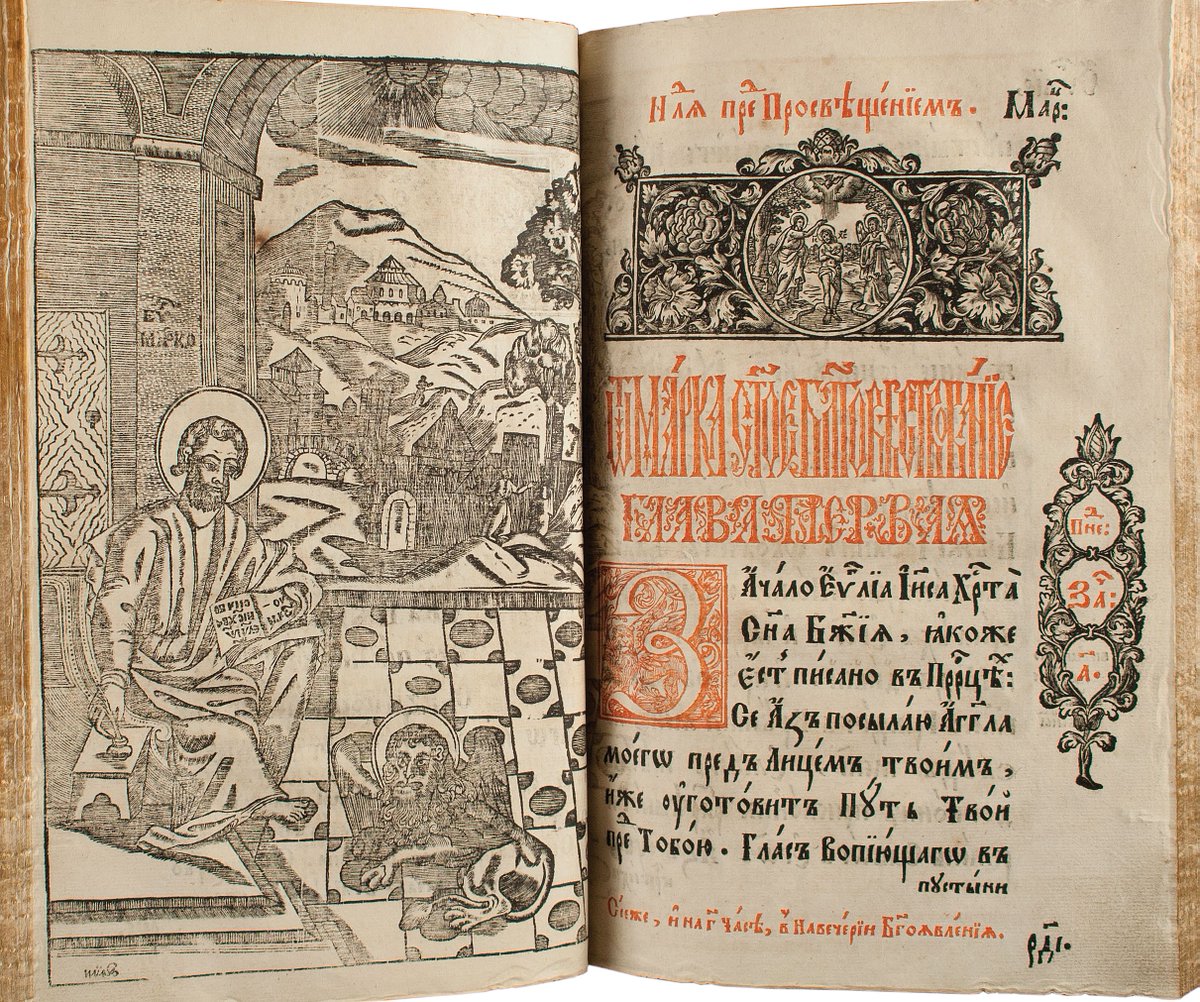 ЕѴ҃
МАРКО
Нлⷧ҇ѧ преⷣ Просвѣщенїемъ. Марⷦ҇:
Ѿ МАРКА СТ҃ОЕ БЛГОВѢСТВОВАНЇЕ
ГЛАВА ПЕРВАѦ
Зачало Еѵⷢ҇лїа Іи҃са Хрⷭ҇та̀
Сн҃а Бж҃їѧ, ꙗкоже
Естъ писано въ Прⷪ҇рцѣⷯ:
Се Азъ посылаю Агг҃ла
моегѡ предъ Лицемъ твоимъ,
иже оуготовитъ Пꙋть Твой
преⷣ Тобою. Гласъ Вопїющагѡ въ
пустыни
Сїеже, и на г҃ Часѣ, в Навечерїи Бг҃оѧвленїѧ.
рд҃і.
Пне:
За҃:
а҃.